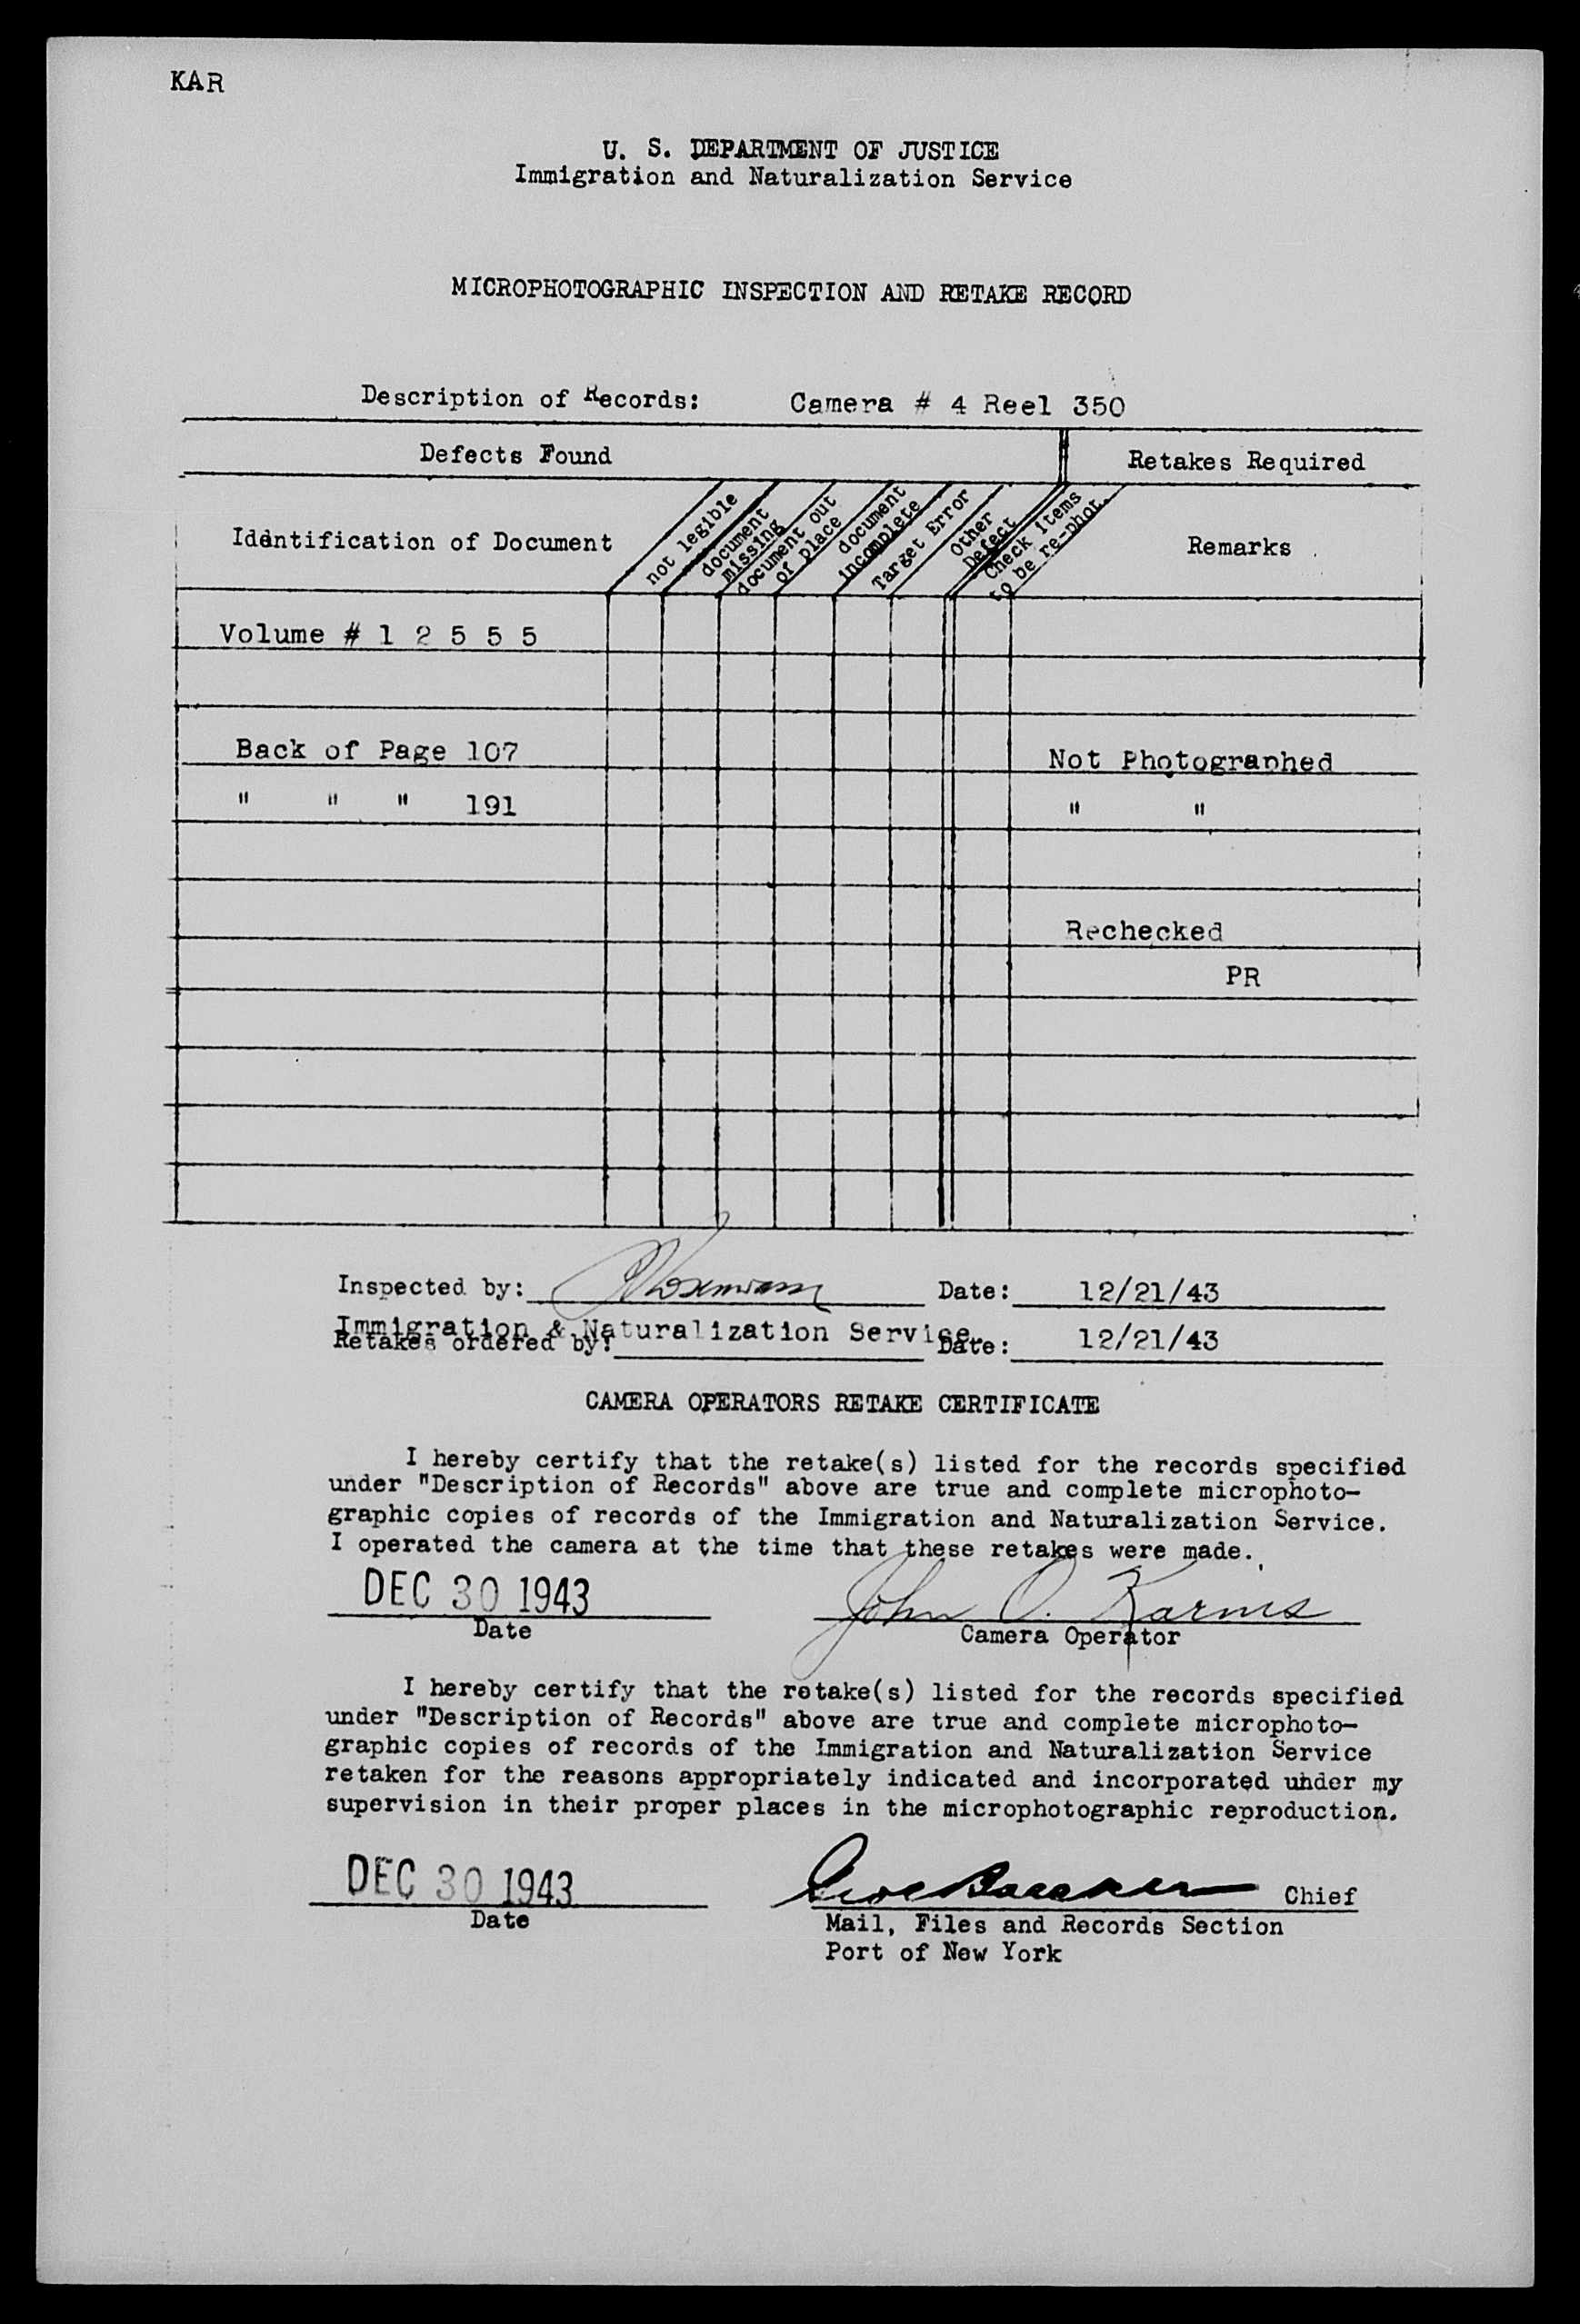 KAR
U. S. DEPARTMENT OF JUSTICE
Immigration and Naturalization Service
MICROPHOTOGRAPHIC INSPECTION AND RETAKE RECORD
Description of Records: Camera # 4 Reel 350
Defects Found Retakes Required
Identification of Document not legible document missing document out of place document incomplete Target Error Other Defect Check items to be re-phot. Remarks
Volume # 1 2 5 5 5
Back of Page 107 Not Photographed
" " " 191 " "
Rechecked
PR
Inspected by: Date: 12/21/43
Immigration & Naturalization Service
Retakes ordered by: Date: 12/21/43
CAMERA OPERATORS RETAKE CERTIFICATE
I hereby certify that the retake(s) listed for the records specified
under "Description of Records" above are true and complete microphoto-
graphic copies of records of the Immigration and Naturalization Service.
I operated the camera at the time that these retakes were made.
DEC 30 1943 John O. Karnes
Date Camera Operator
I hereby certify that the retake(s) listed for the records specified
under "Description of Records" above are true and complete microphoto-
graphic copies of records of the Immigration and Naturalization Service
retaken for the reasons appropriately indicated and incorporated under my
supervision in their proper places in the microphotographic reproduction.
DEC 30 1943 Chief
Date Mail, Files and Records Section
Port of New York